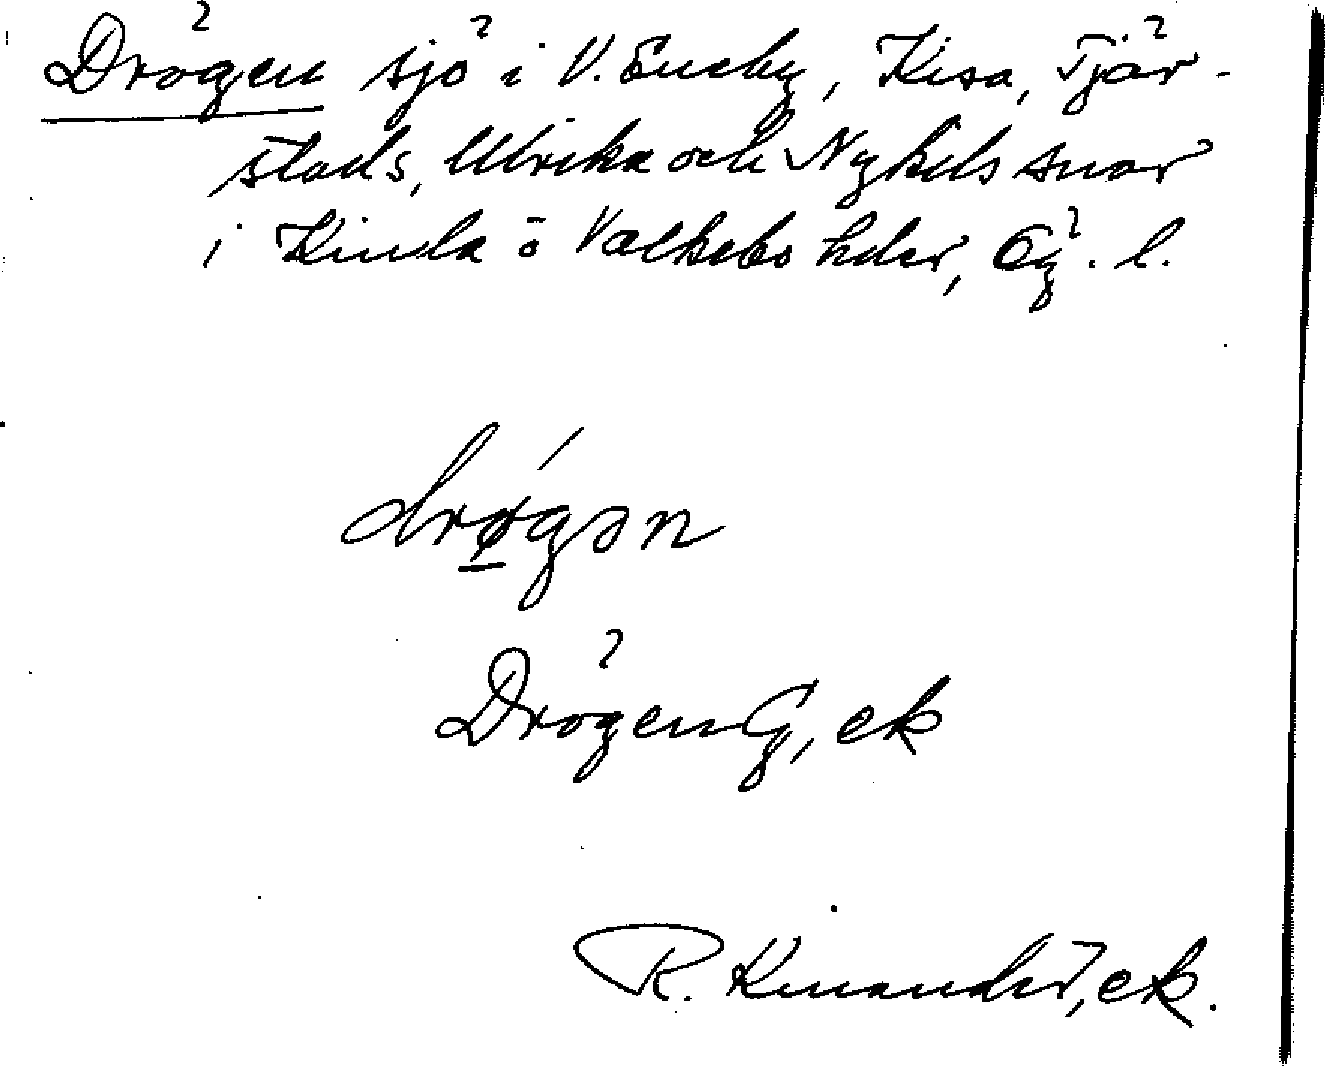 Drögen sjö i V. Eneby, Kisa, Tjär-
stads, Ulrika och Nykils snar
i Kinda o Valkebo hder, Ög. l.
drø̱gən
Drögen G, ek
R. Kinander, ek.